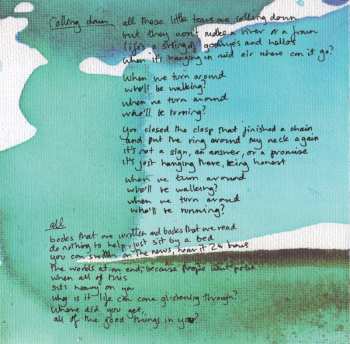 Falling down all these little tears are falling down
but they won't make a river or a
life's a string of goodbyes and hellos
when it's hanging in mid air where can it go?
when we turn around
who'll be walking?
when we turn around
who'll be running?
You closed the clasp that finished a chain
and put the ring around my neck again
it's not a sign, an answer, or a promise
it's just hanging there, being honest
when we turn around
who'll be walking?
when we turn around
who'll be running?
all
books that are written and books that are read
do nothing to help, just sit by a bed
you can swallow the news, hear it 24 hours
the world's at an end, because people want power
when all of this
sits heavy on you
why is it life can come glistening through?
Where did you get,
all of the good things in you?